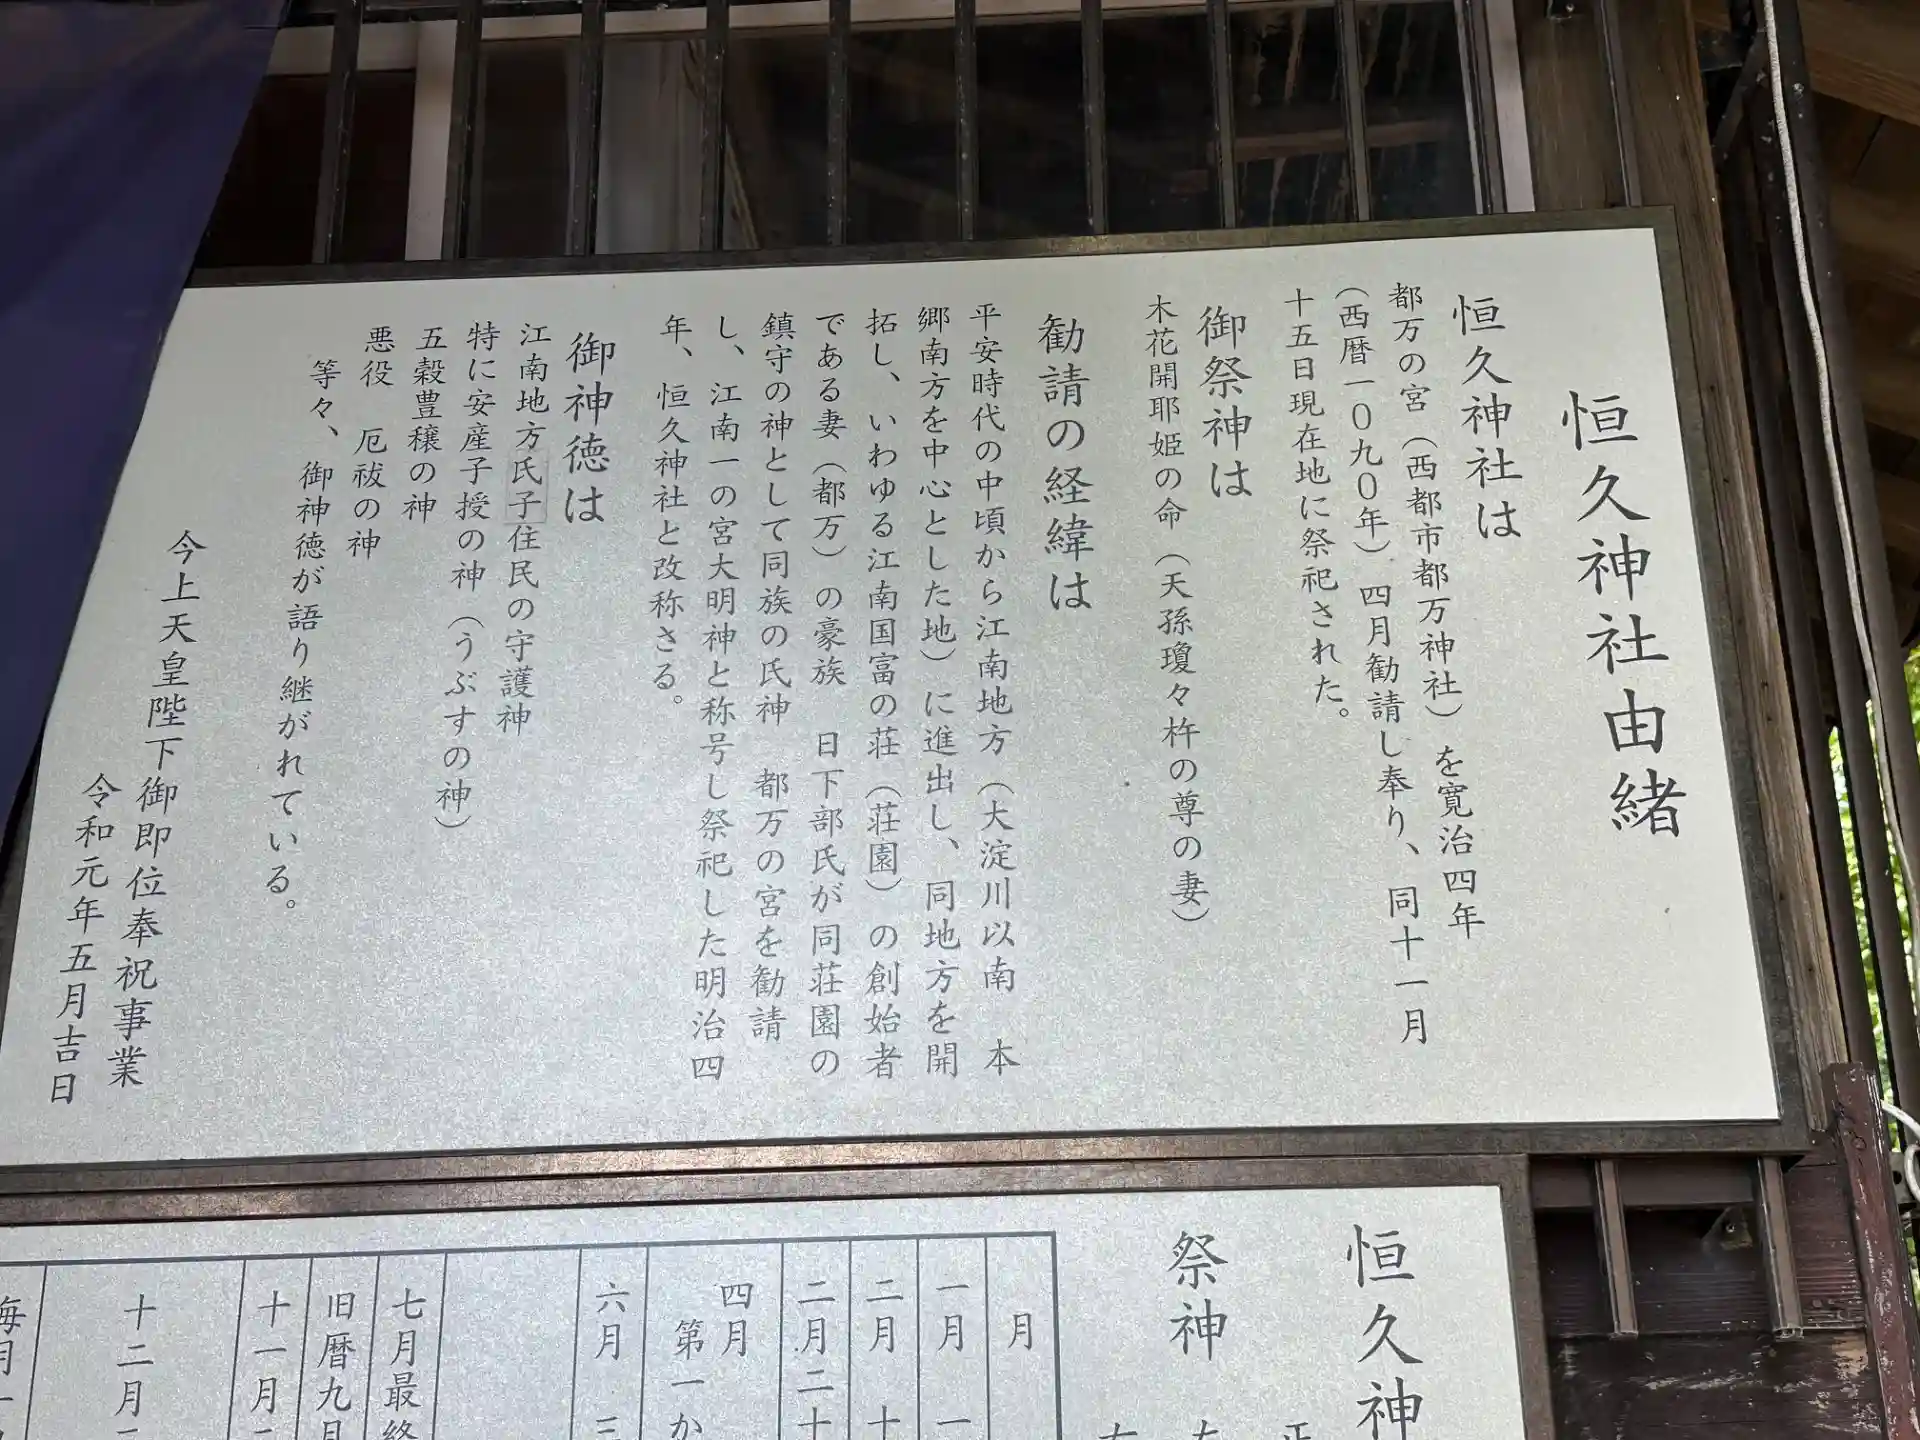 恒久神社由緒
恒久神社は
都万の宮(西都市都万神社)を寛治四年
(西暦一〇九〇年)四月勧請し奉り、同十一月
十五日現在地に祭祀された。
御祭神は
木花開耶姫の命(天孫瓊々杵の尊の妻)
勧請の経緯は
平安時代の中頃から江南地方(大淀川以南 本
郷南方を中心とした地)に進出し、同地方を開
拓し、いわゆる江南国富の荘(荘園)の創始者
である妻(都万)の豪族 日下部氏が同荘園の
鎮守の神として同族の氏神 都万の宮を勧請
し、江南一の宮大明神と称号し祭祀した明治四
年、恒久神社と改称さる。
御神徳は
江南地方氏子住民の守護神
特に安産子授の神(うぶすの神)
五穀豊穣の神
悪役 厄祓の神
等々、御神徳が語り継がれている。
今上天皇陛下御即位奉祝事業
令和元年五月吉日
恒久神
祭神
月
一月 一
二月 十
二月二十
四月
第一か
六月 三
七月最終
旧暦九月
十一月
十二月
毎月一